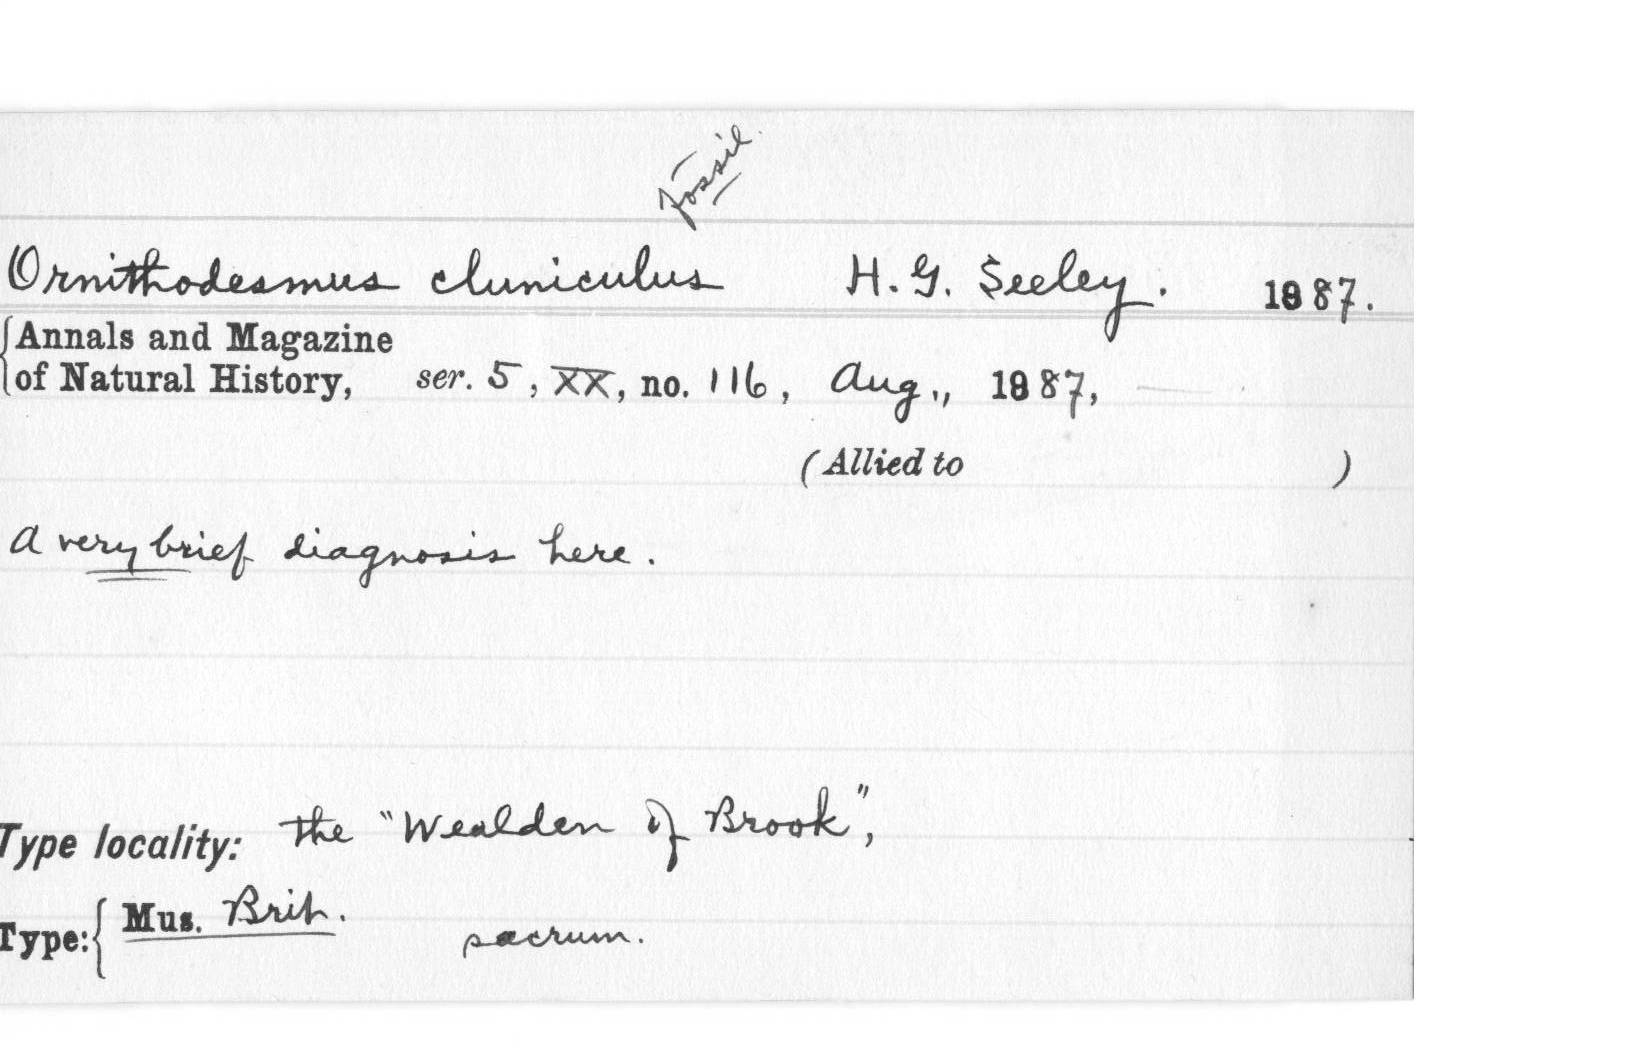 fossil.
Ornithodesmus cluniculus H. G. Seeley. 1887.
{Annals and Magazine
of Natural History, ser. 5, XX, no. 116, Aug., 1887,
(Allied to )
A very brief diagnosis here.
Type locality: the "Wealden of Brook",
Type: { Mus. Brit. sacrum.